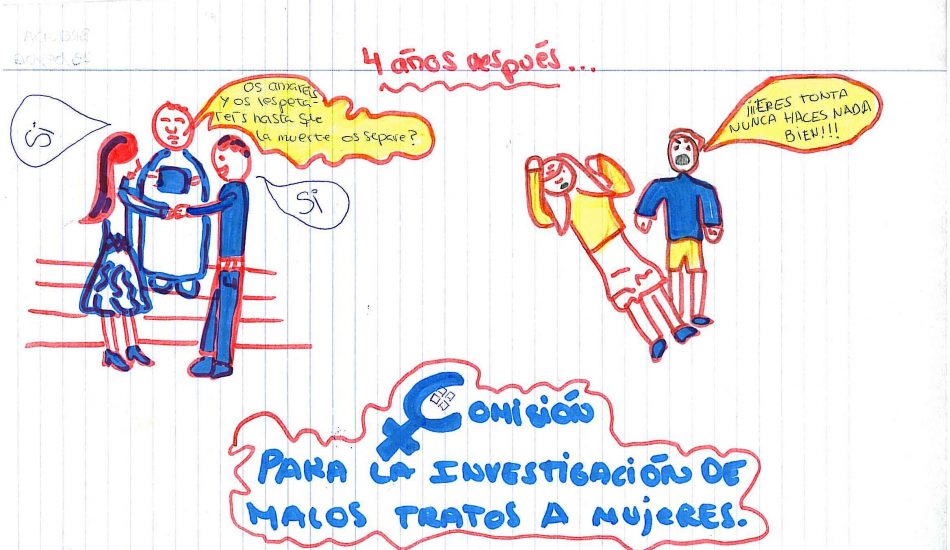 4 años después...
Si
Os amareis
y os respeta-
reis hasta que
la muerte os separe?
Si
¡¡¡ERES TONTA
NUNCA HACES NADA
BIEN!!!
COMISIÓN
PARA LA INVESTIGACIÓN DE
MALOS TRATOS A MUJERES.